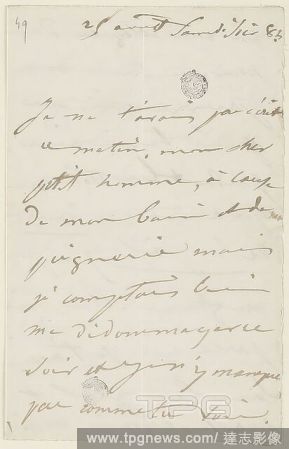 49
25 avril Samedi soir 8h
Je ne t'avais pas écrit
ce matin, mon cher
petit homme, à cause
de mon bain et de ma
peignerie mais
je comptais bien
me dédommager ce
soir et je n'y manque
pas comme tu vois.
TPG
www.tpgnews.com / 達志影像